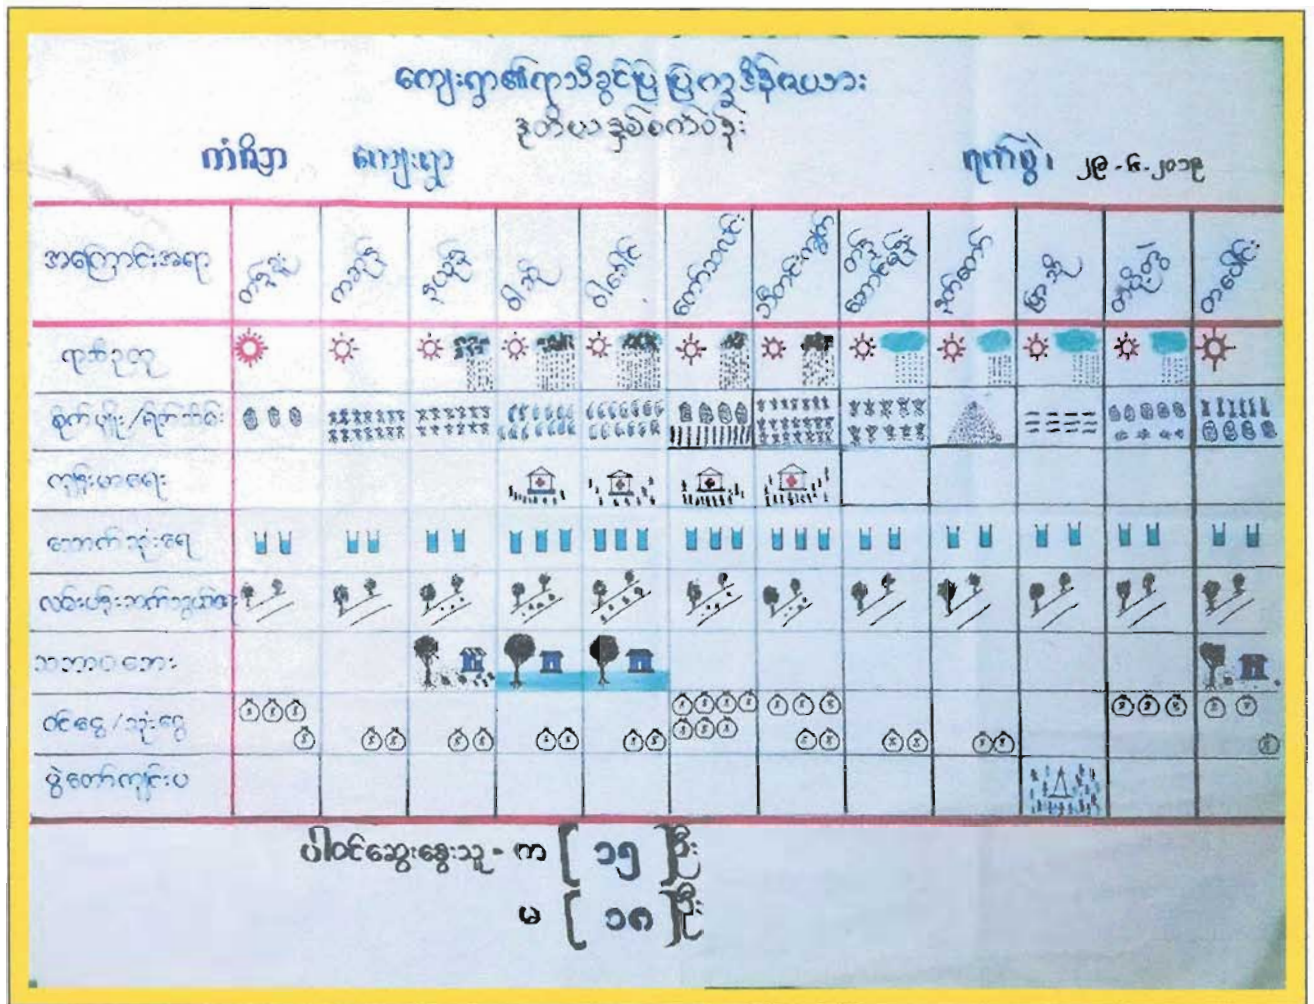 ကျေးရွာ၏ရာသီခွင်ပြ ပြက္ခဒိန်ဇယား
ဒုတိယနှစ်စက်ဝန်း
ကျေးရွာ ရက်စွဲ၊ ၂၉-၆-၂၀၁၉
အကြောင်းအရာ တန်ခူး ကဆုန် နယုန် ဝါဆို ဝါခေါင် တော်သလင်း သီတင်းကျွတ် တန်ဆောင်မုန်း နတ်တော် ပြာသို တပို့တွဲ တပေါင်း
ရာသီဥတု
စိုက်ပျိုး/ရိတ်သိမ်း
ကျန်းမာရေး
သောက်သုံးရေ
လမ်းပန်းဆက်သွယ်ရေး
သဘာဝဘေး
ဝင်ငွေ/သုံးငွေ
ပွဲတော်ကျင်းပ
ပါဝင်ဆွေးနွေးသူ - ကျ [ ၁၅ ] ဦး
မ [ ၁၈ ] ဦး